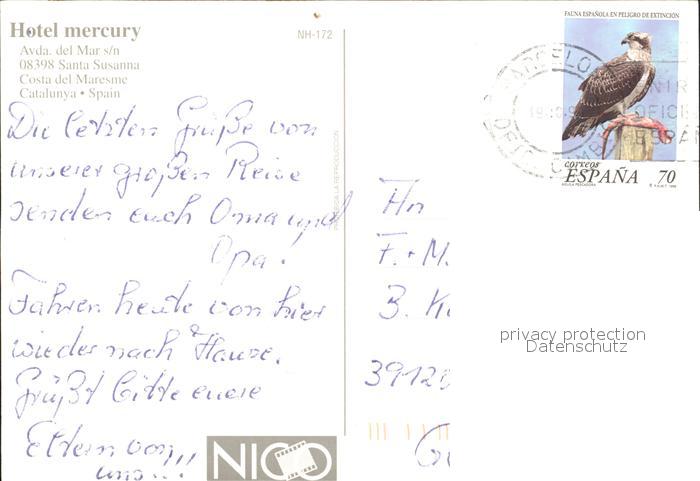 Hotel mercury
Avda. del Mar s/n
08398 Santa Susanna
Costa del Maresme
Catalunya • Spain
NH-172
Die letzten Grüße von
unserer großen Reise
senden euch Oma und
Opa.
Fahren heute von hier
wieder nach Hause.
Grüßt bitte eure
Eltern von
uns..!!
NICO
FAUNA ESPAÑOLA EN PELIGRO DE EXTINCION
correos
ESPAÑA 70
AGUILA PESCADORA
BARCELO
An
F. + M.
B. K
39120
privacy protection
Datenschutz